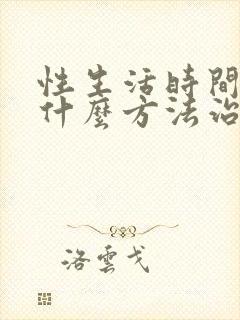 性生活時間
什麼方法治
洛雲戈